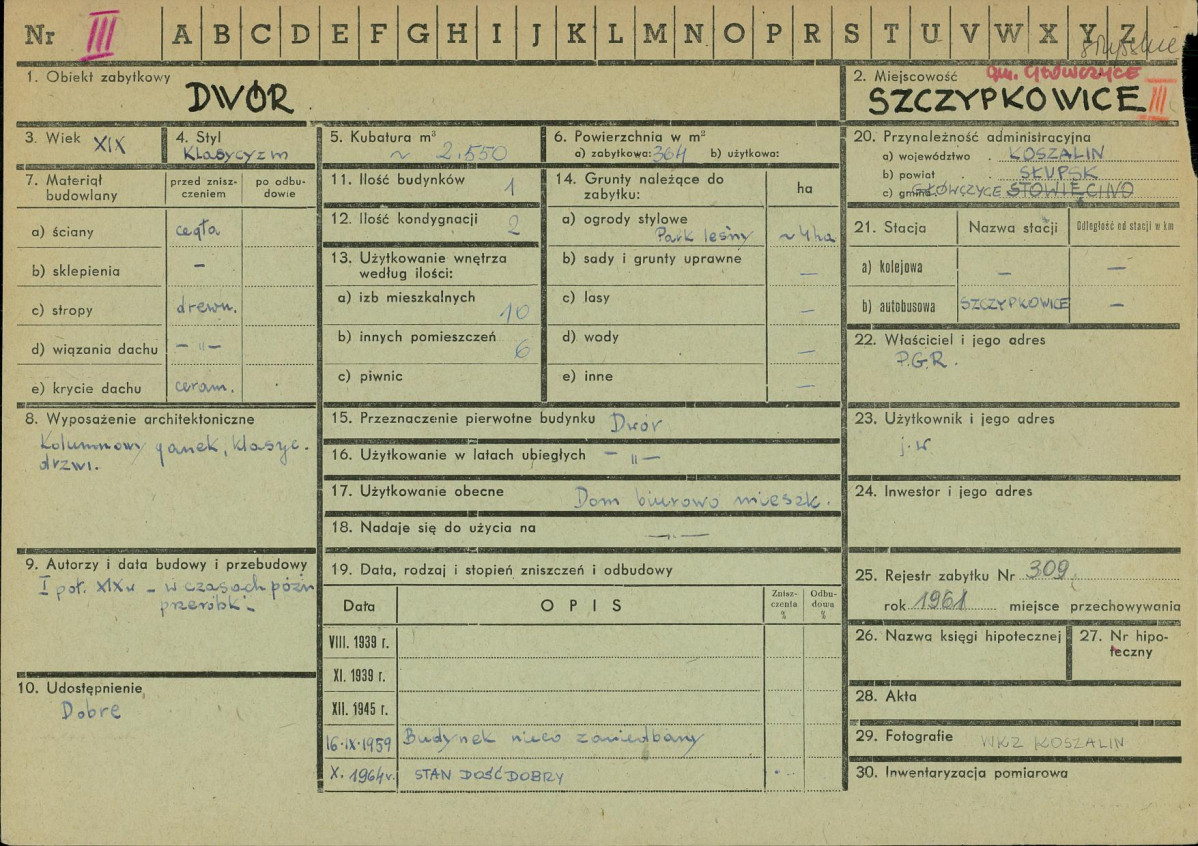 Nr III A B C D E F G H I J K L M N O P R S T U V W X Y Z
1. Obiekt zabytkowy
DWÓR
2. Miejscowość gm. GŁÓWCZYCE
SZCZYPKOWICE III
3. Wiek XIX
4. Styl
Klasycyzm
5. Kubatura m³
~ 2.550
6. Powierzchnia w m²
a) zabytkowa: 364 b) użytkowa:
7. Materiał budowlany
przed znisz-
czeniem
po odbu-
dowie
a) ściany cegła
b) sklepienia –
c) stropy drewn.
d) wiązania dachu – „ –
e) krycie dachu ceram.
8. Wyposażenie architektoniczne
Kolumnowy ganek, klasyc.
drzwi.
9. Autorzy i data budowy i przebudowy
I poł. XIX w – w czasach późn
przeróbki –
10. Udostępnienie
Dobre
11. Ilość budynków 1
12. Ilość kondygnacji 2
13. Użytkowanie wnętrza
według ilości:
a) izb mieszkalnych 10
b) innych pomieszczeń 6
c) piwnic
14. Grunty należące do
zabytku:
ha
a) ogrody stylowe
Park leśny ~ 4 ha
b) sady i grunty uprawne —
c) lasy —
d) wody —
e) inne —
15. Przeznaczenie pierwotne budynku Dwór
16. Użytkowanie w latach ubiegłych – „ –
17. Użytkowanie obecne Dom biurowo mieszk.
18. Nadaje się do użycia na —.—
19. Data, rodzaj i stopień zniszczeń i odbudowy
Data OPIS
Znisz-
czenia
%
Odbu-
dowa
%
VIII. 1939 r.
XI. 1939 r.
XII. 1945 r.
16.IX.1959 Budynek nieco zaniedbany
X. 1964 r. STAN DOŚĆ DOBRY
20. Przynależność administracyjna
a) województwo . KOSZALIN
b) powiat . . SŁUPSK
c) gmina GŁÓWCZYCE STOWIĘCINO
21. Stacja Nazwa stacji Odległość od stacji w km
a) kolejowa – —
b) autobusowa SZCZYPKOWICE –
22. Właściciel i jego adres
P.G.R.
23. Użytkownik i jego adres
j.w
24. Inwestor i jego adres
25. Rejestr zabytku Nr 309.
rok 1961 miejsce przechowywania
26. Nazwa księgi hipotecznej
27. Nr hipo-
teczny
28. Akta
29. Fotografie WKZ KOSZALIN
30. Inwentaryzacja pomiarowa